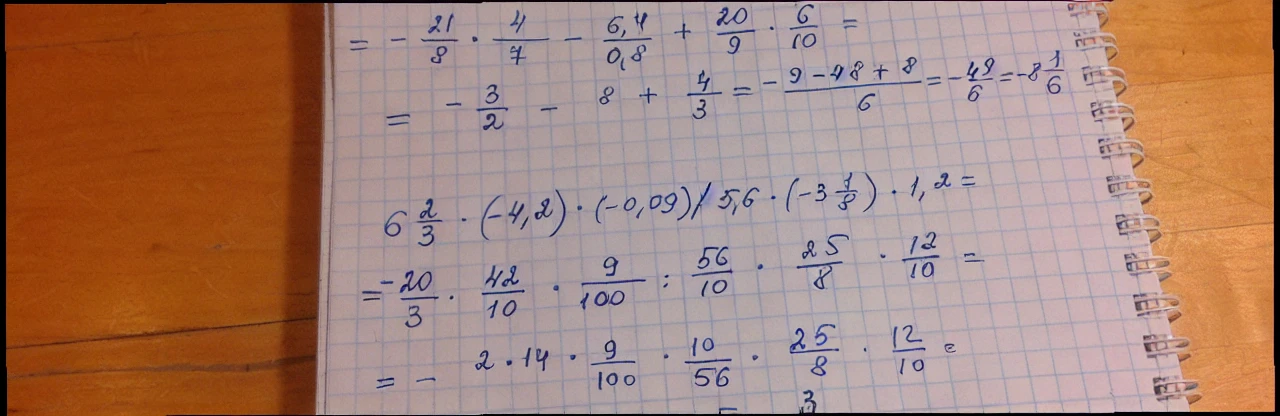 = - 21/8 · 4/7 - 6,4/0,8 + 20/9 · 6/10 =
= - 3/2 - 8 + 4/3 = - 9 - 48 + 8/6 = - 49/6 = -8 1/6
6 2/3 · (-4,2) · (-0,09) / 5,6 · (-3 1/8) · 1,2 =
= - 20/3 · 42/10 · 9/100 : 56/10 · 25/8 · 12/10 =
= - 2 · 14 · 9/100 · 10/56 · 25/8 · 12/10 =
- 3